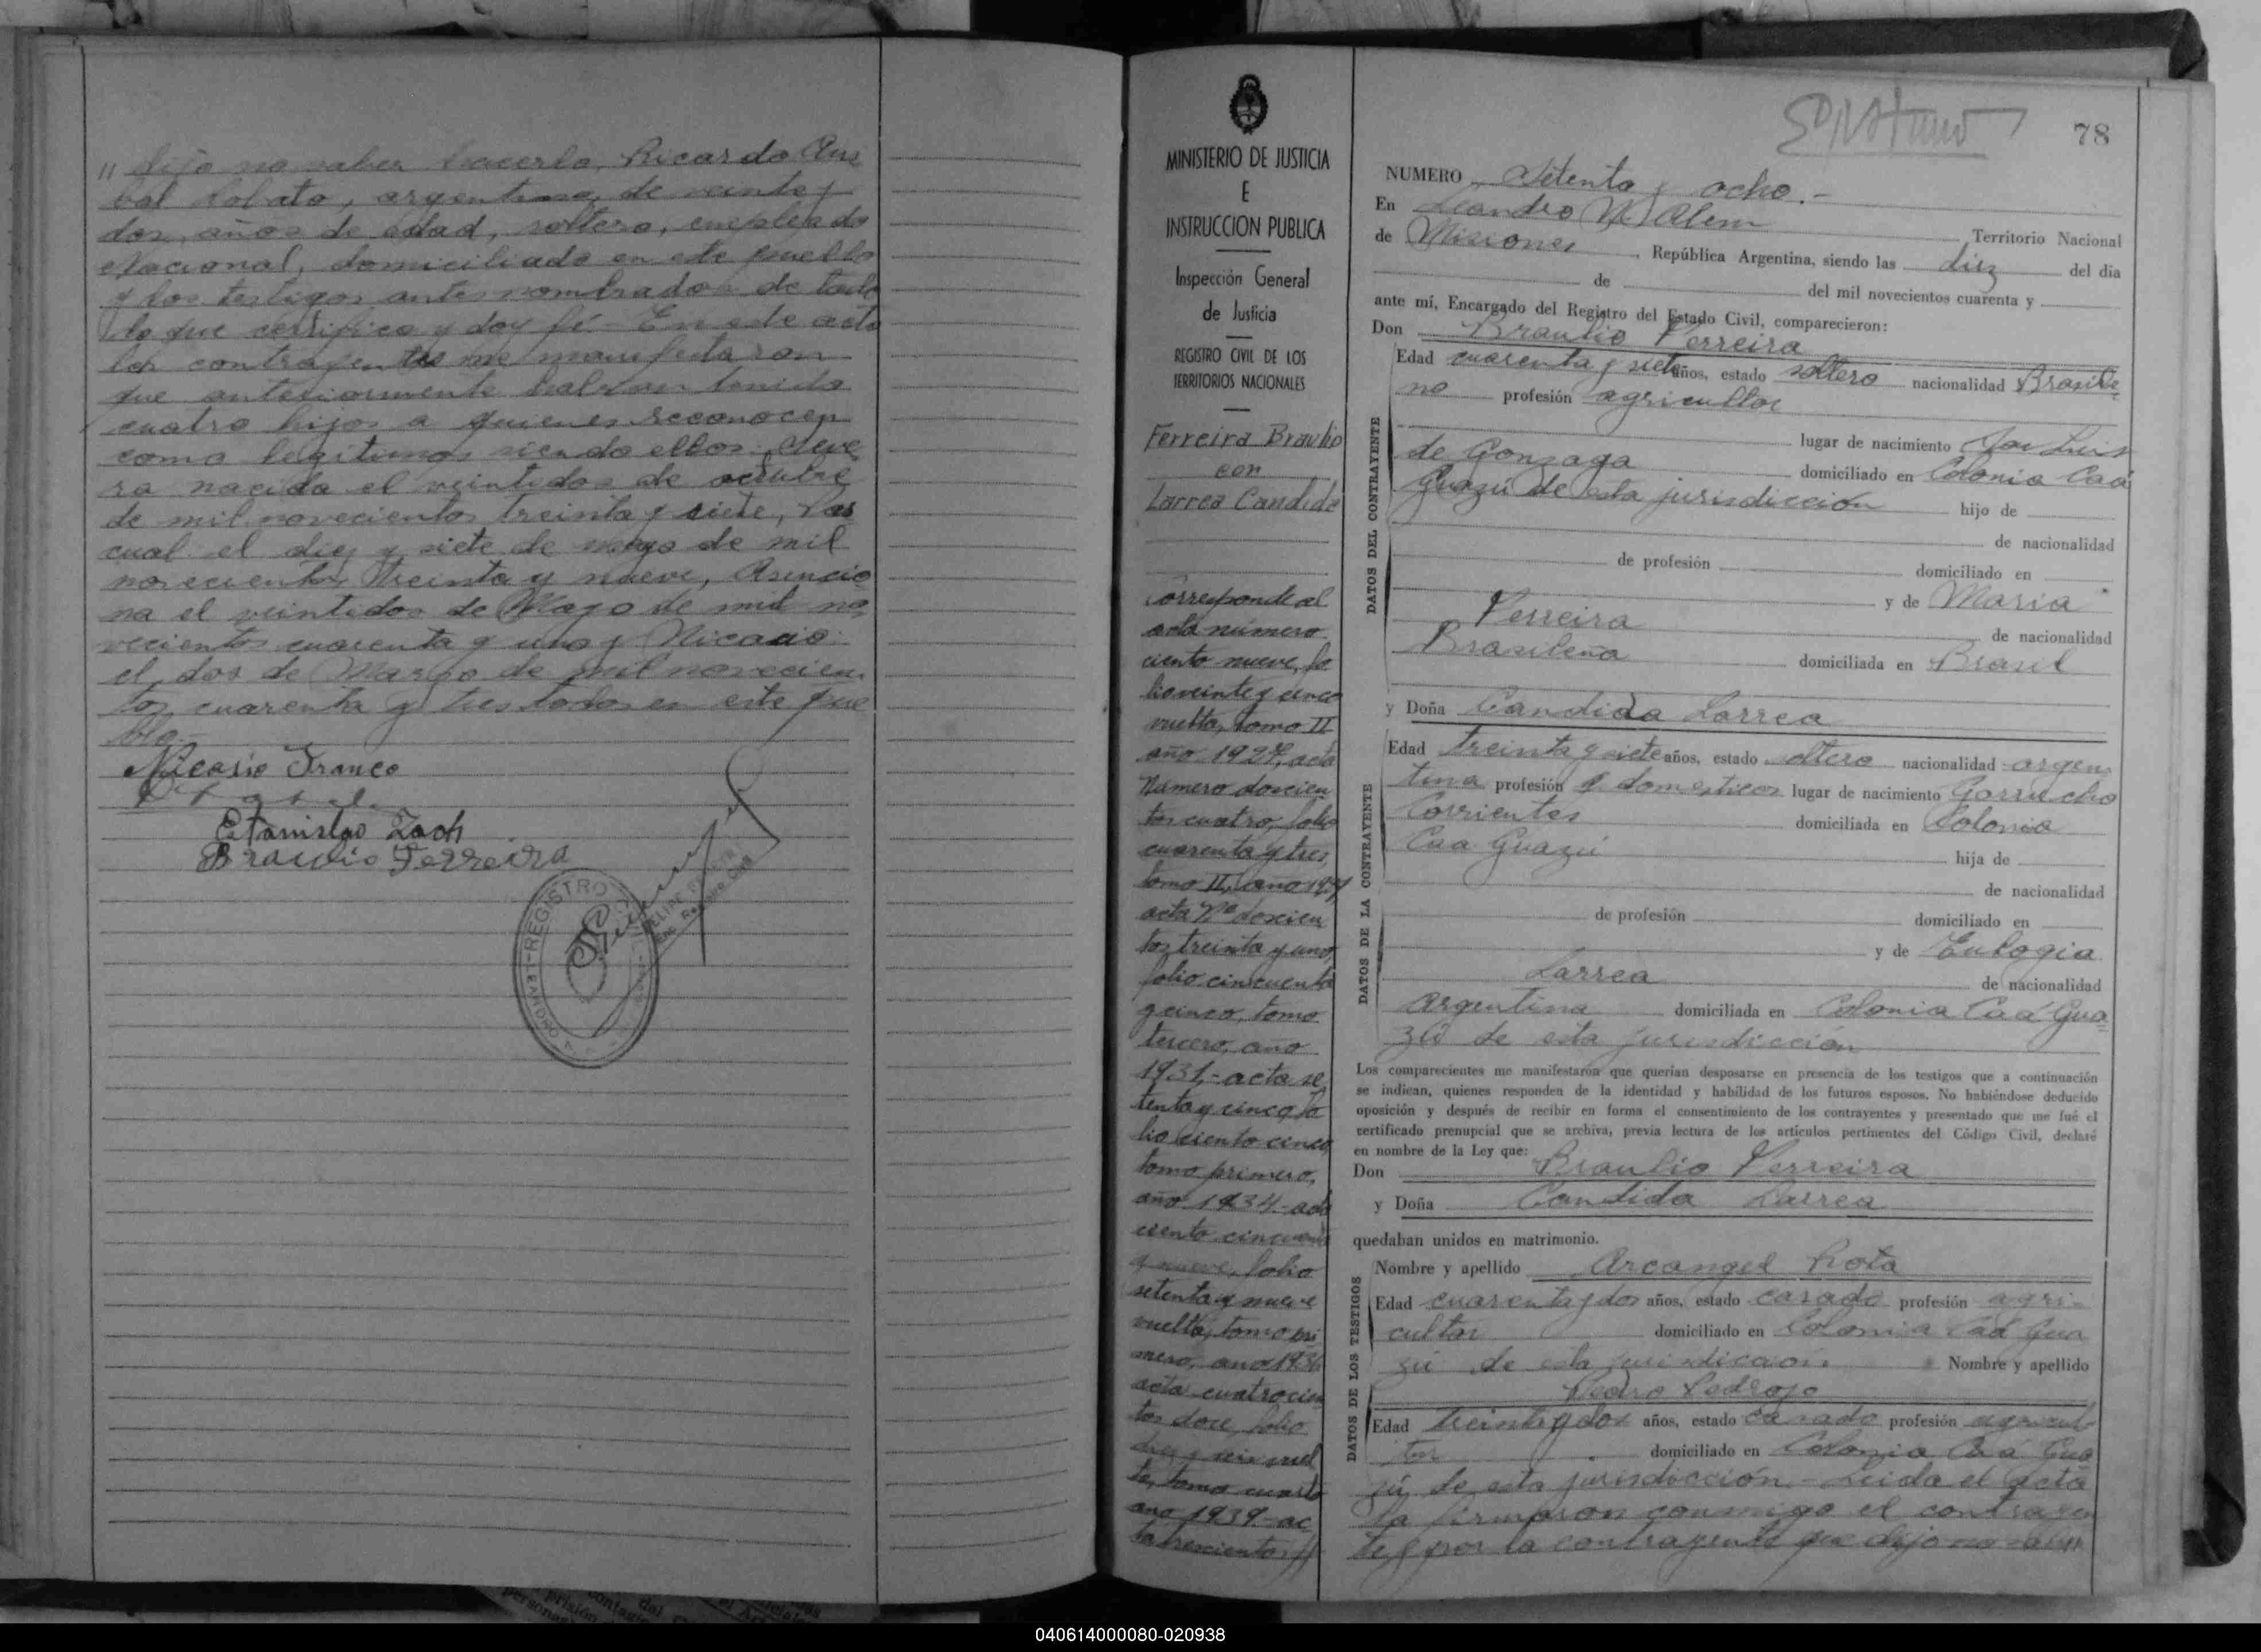 " dijo no saber hacerlo, Ricardo Anibal
bal Lobato, argentino, de veinte y
dos, años de edad, soltero, empleado
Nacional, domiciliado en este pueblo
y los testigos antes nombrados de todo
lo que certifico y doy fé.- En este acto
los contrayentes me manifestaron
que anteriormente habian tenido
cuatro hijos a quienes reconocen
como legitimos siendo ellos:
ra nacida el veintidos de octubre
de mil novecientos treinta y siete, Pas
cual el diez y siete de mayo de mil
novecientos treinta y nueve, Asencio
na el veintidos de Mayo de mil no
vecientos cuarenta y uno y Nicacio
el dos de Marzo de mil novecien
tos cuarenta y tres todos en este pue
blo.-
Nicasio Franco
Estanislao Zach
Braulio Ferreira
REGISTRO
MINISTERIO DE JUSTICIA
E
INSTRUCCION PUBLICA
Inspección General
de Justicia
REGISTRO CIVIL DE LOS
TERRITORIOS NACIONALES
Ferreira Braulio
con
Larrea Candida
Corresponde al
acta número
ciento nueve, fo
lio veinte y cinco
vuelta, tomo II
año 1927, acta
Número doscien
tos cuatro, folio
cuarenta y tres
tomo II, año 19
acta Nº doscien
tos treinta y uno
folio cincuenta
y cinco, tomo
tercero, año
1931,- acta se
tenta y cinco, fo
lio ciento cinco
tomo primero,
año 1934.- acta
ciento cincuenta
y nueve, folio
setenta y nueve
vuelta, tomo pri
mero, año 1936
acta cuatrocien
tos doce folio
diez y seis vuel
ta, tomo cuarto
año 1939.- ac
ta trescientos //
78
NUMERO Setenta y ocho.-
En Leandro N. Alem
Territorio Nacional
de Misiones, República Argentina, siendo las diez del día
de del mil novecientos cuarenta y
ante mí, Encargado del Registro del Estado Civil, comparecieron:
Don Braulio Ferreira
DATOS DEL CONTRAYENTE
Edad cuarenta y siete años, estado soltero nacionalidad Brasile
no profesión agricultor
lugar de nacimiento San Luis
de Gonzaga domiciliado en Colonia Caá
Guazú de esta jurisdicción hijo de
de nacionalidad
de profesión domiciliado en
y de Maria
Ferreira de nacionalidad
Brasileña domiciliada en Brasil
y Doña Candida Larrea
DATOS DE LA CONTRAYENTE
Edad treinta y siete años, estado soltero nacionalidad argen
tina profesión q. domesticos lugar de nacimiento Garruchos
Corrientes domiciliada en Colonia
Caa Guazú hija de
de nacionalidad
de profesión domiciliado en
y de Eulogia
Larrea de nacionalidad
argentina domiciliada en Colonia Caá Gua
zú de esta jurisdicción
Los comparecientes me manifestarón que querían desposarse en presencia de los testigos que a continuación
se indican, quienes responden de la identidad y habilidad de los futuros esposos. No habiéndose deducido
oposición y después de recibir en forma el consentimiento de los contrayentes y presentado que me fué el
certificado prenupcial que se archiva, previa lectura de los artículos pertinentes del Código Civil, declaré
en nombre de la Ley que:
Don Braulio Ferreira
y Doña Candida Larrea
quedaban unidos en matrimonio.
DATOS DE LOS TESTIGOS
Nombre y apellido Arcangel Rota
Edad cuarenta y dos años, estado casado profesión agri-
cultor domiciliado en Colonia Caá Gua
zú de esta jurisdicción Nombre y apellido
Pedro Pedrozo
Edad treinta y dos años, estado casado profesión agricul
tor domiciliado en Colonia Caá Gua
zú de esta jurisdicción.- Leida el acta
la firmaron conmigo el contrayen
te y por la contrayente que dijo no saber
040614000080-020938